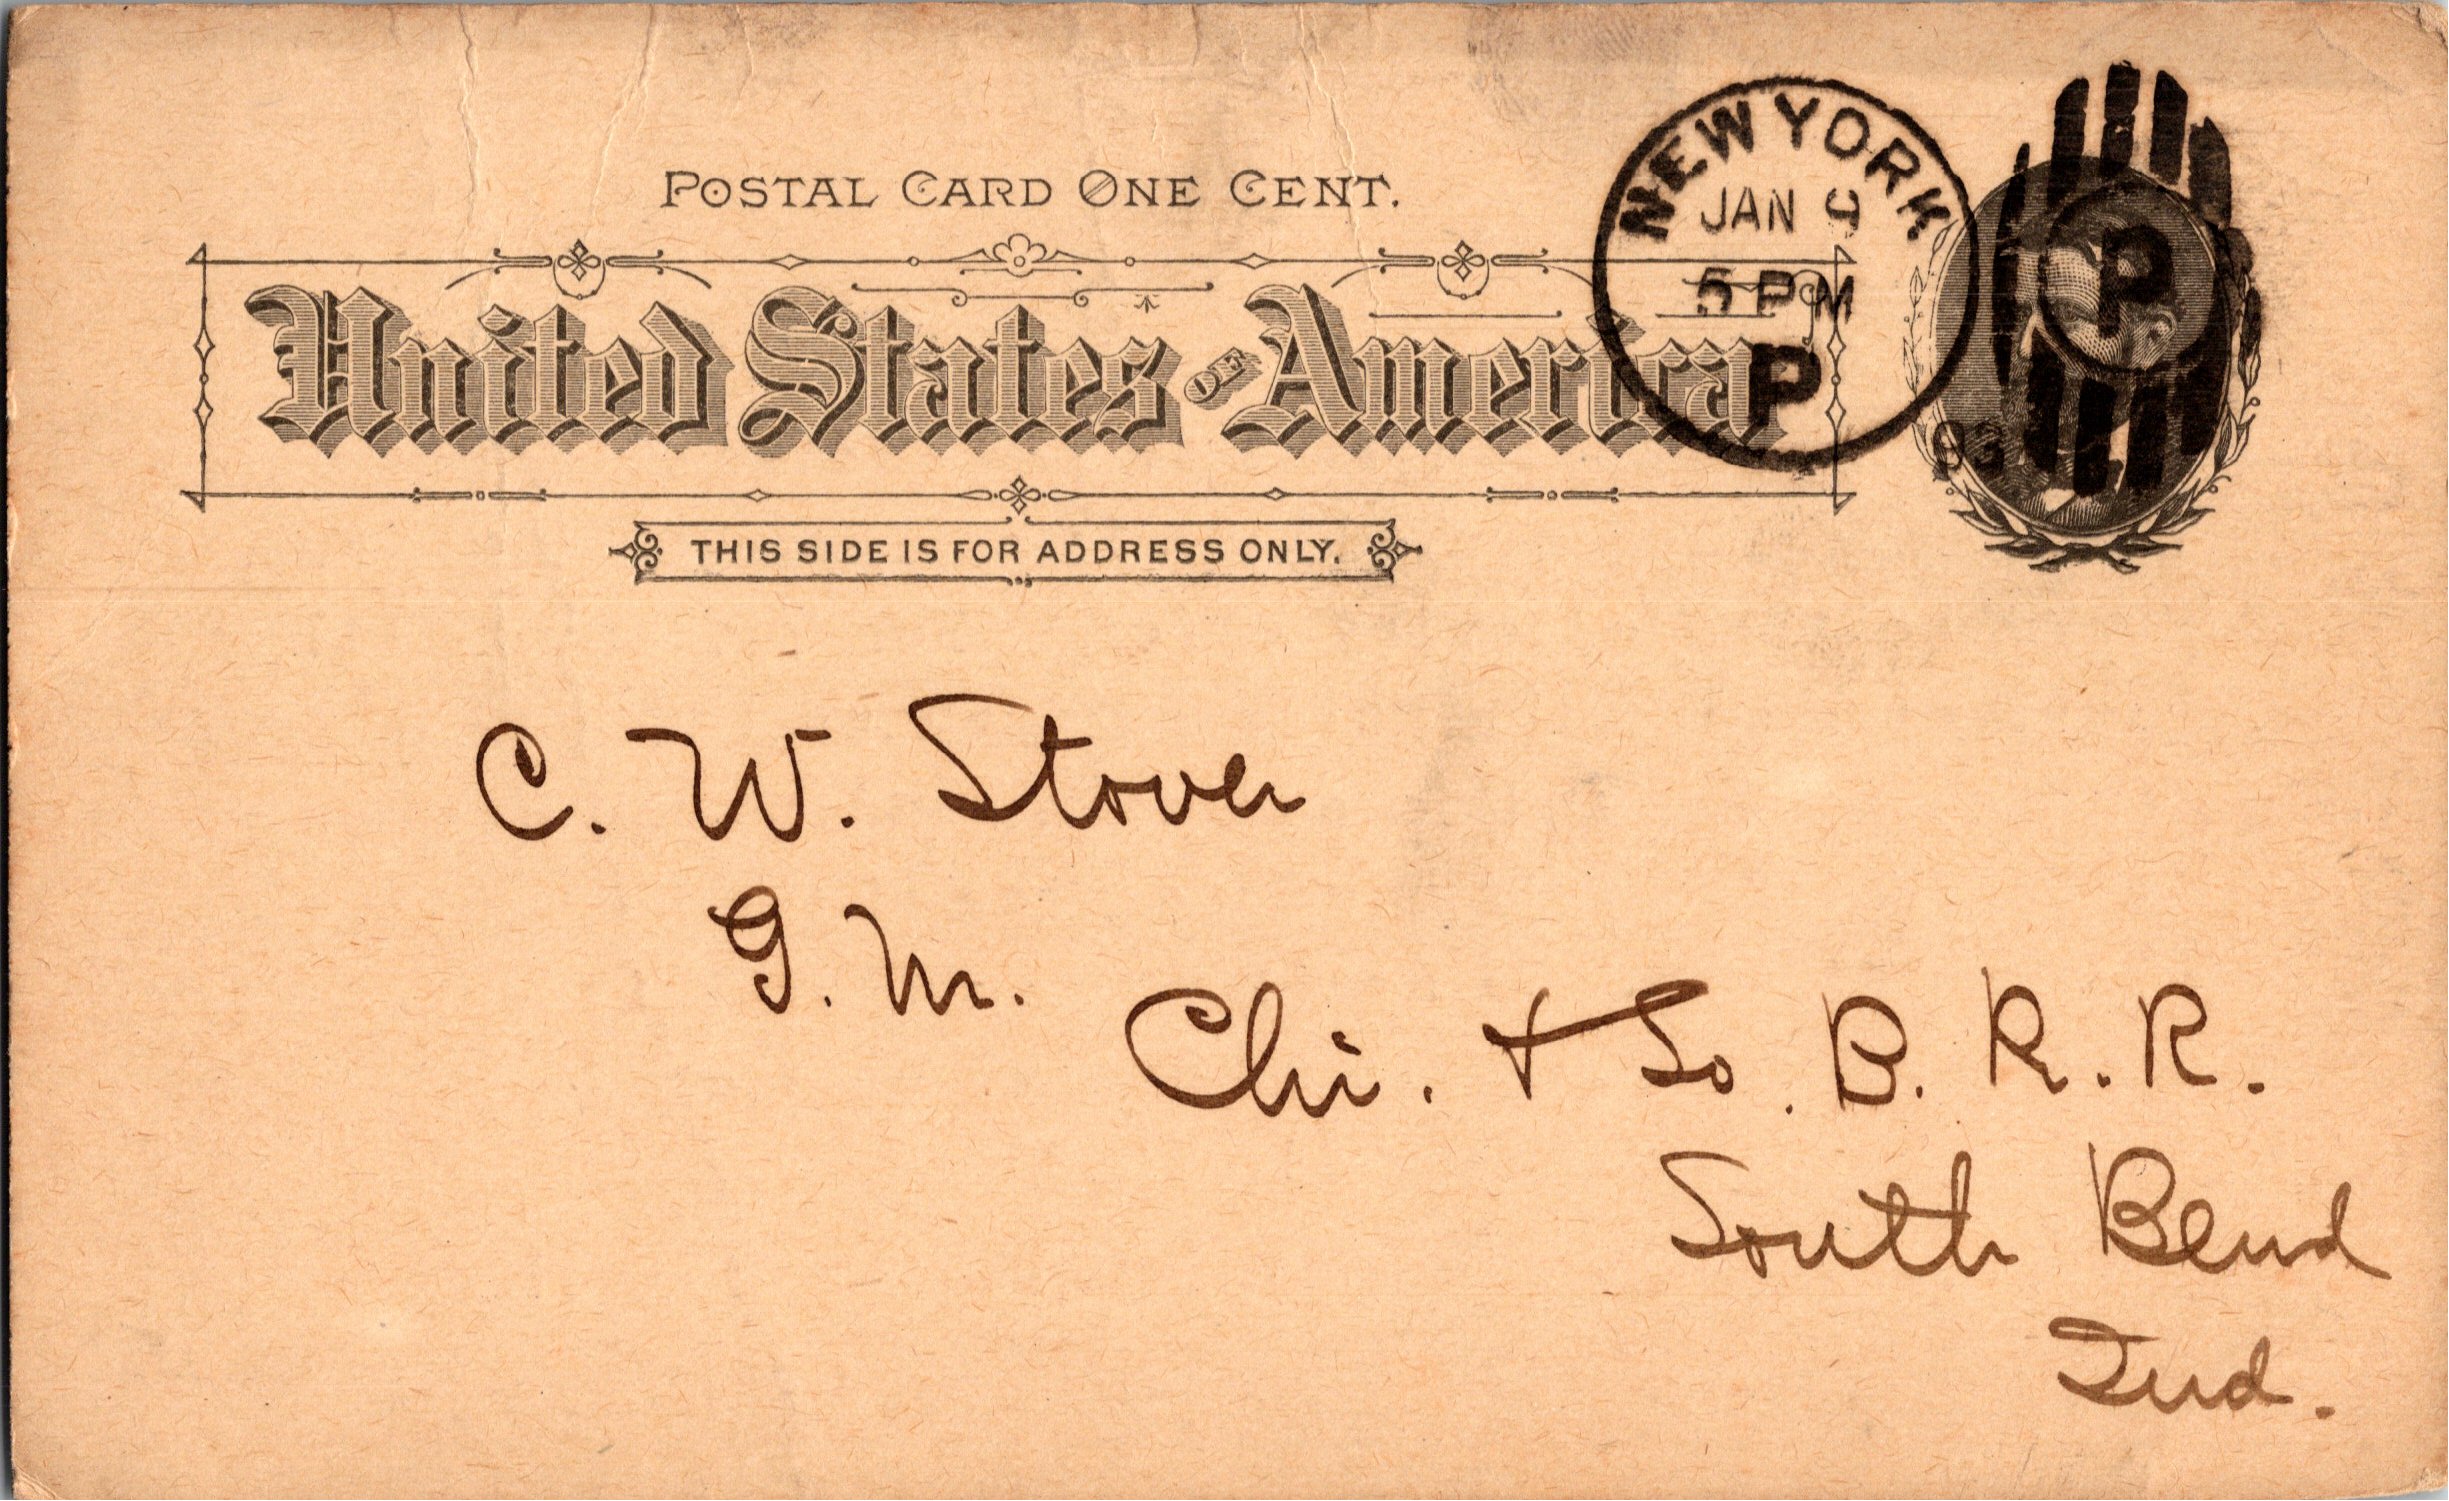 POSTAL CARD ONE CENT.
United States OF America
THIS SIDE IS FOR ADDRESS ONLY.
NEW YORK
JAN 9
5 PM
P
93
P
C. W. Stover
G. M.
Chi. + So. B. R. R.
South Bend
Ind.